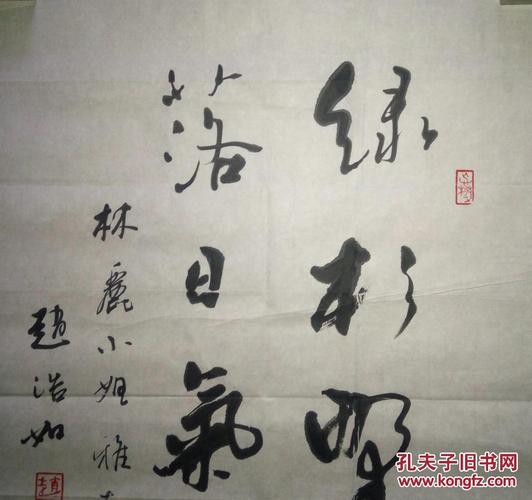 绿杉野
落日氣
林麗小姐雅
趙浩如
趙
孔夫子旧书网
www.kongfz.com